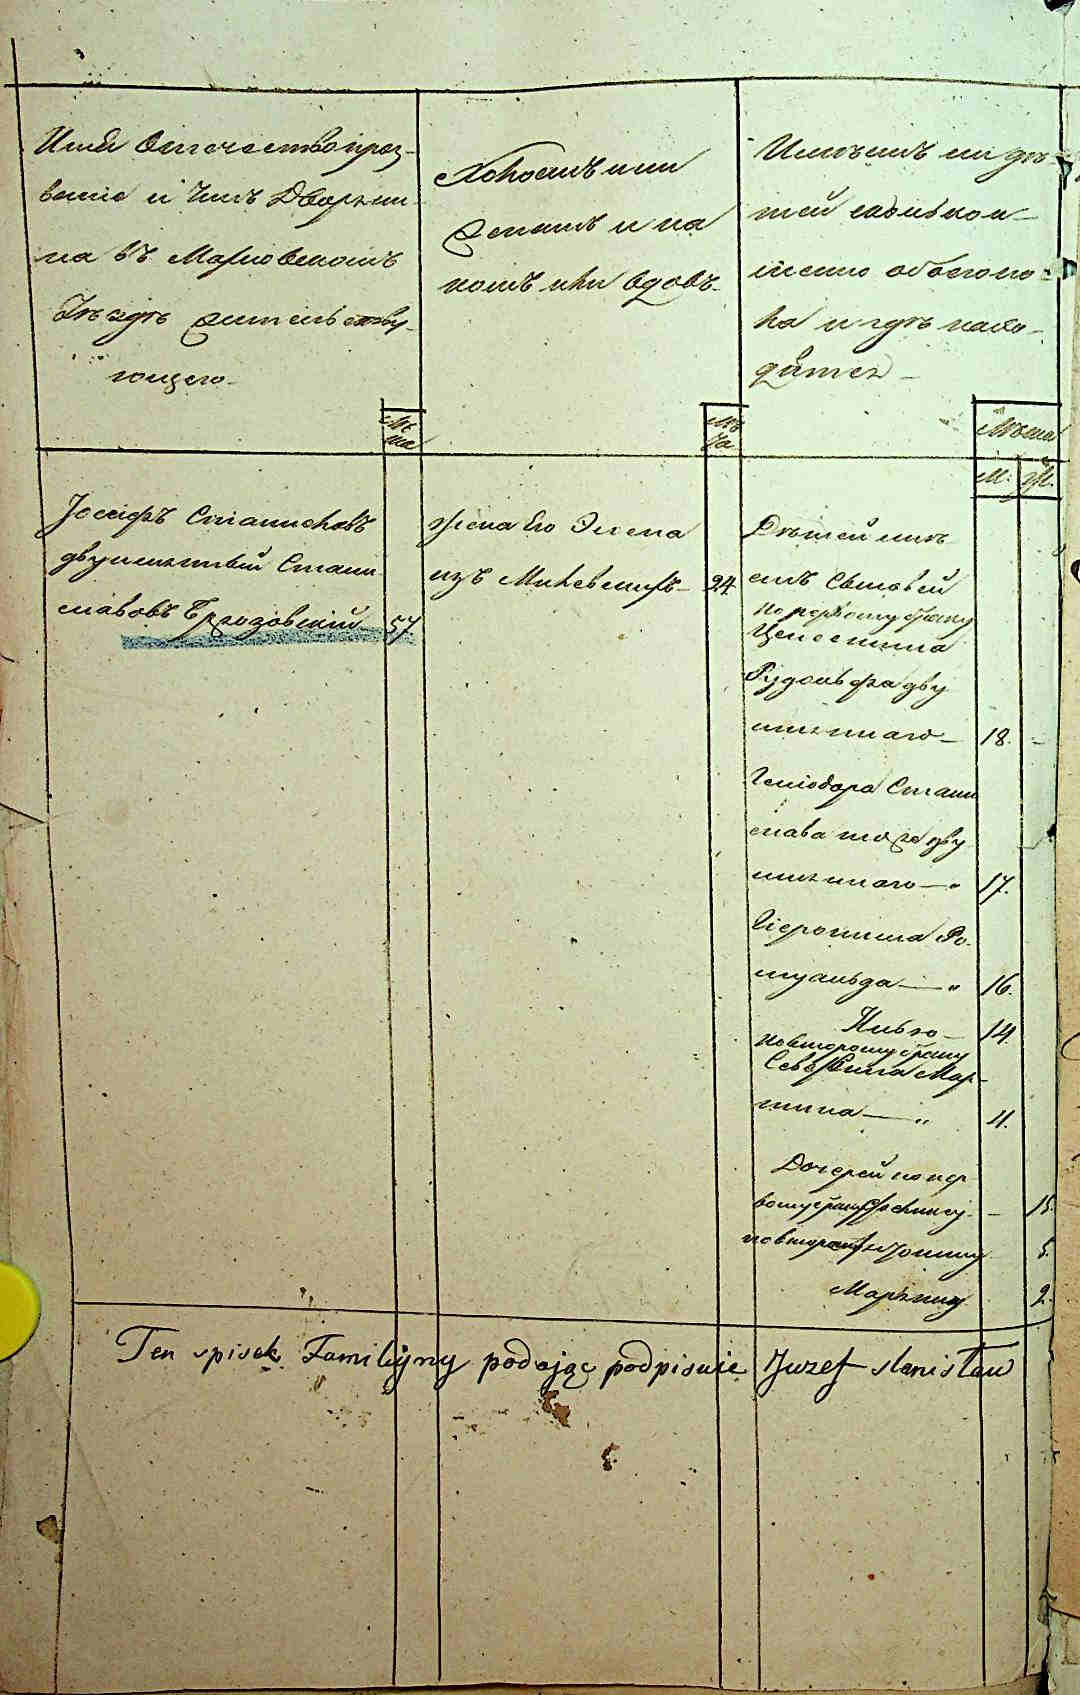 Имя Отечество проз-
вание и чинъ Дворяни-
на въ Махновскомъ
Уѣздѣ жительству-
ющего
Холостъ или
женатъ и на
комъ или вдовъ.
Имѣетъ ли дѣ-
тей сколько и
именно обоего по-
ла и гдѣ нахо-
дятся
Лѣ
та
Лѣ
та
Лѣта
М. Ж.
Іосифъ Станиславъ
двуимянный Стани
славовъ Бржозовскій 57
жена его Элена
изъ 24
Дѣтей имѣ
етъ сыновей
по первому браку
Целестина
Рудольфа дву
имяннаго 18.
Геліодора Стани
слава тоже дву
имяннаго 17.
Іеронима Ро-
муальда 16.
14.
по второму браку
Северина Мар-
тина 4.
Дочерей по пер
вому браку 15.
по второму 5.
Маріянну 2.
Ten spisek Familijny podając podpisuie Juzef stanisław